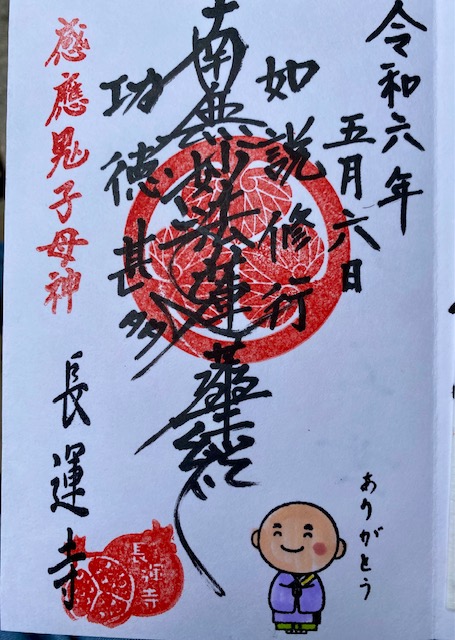 令和六年
五月六日
如説修行
南無妙法蓮華経
功徳甚多
感應鬼子母神
長運寺
長運寺
ありがとう